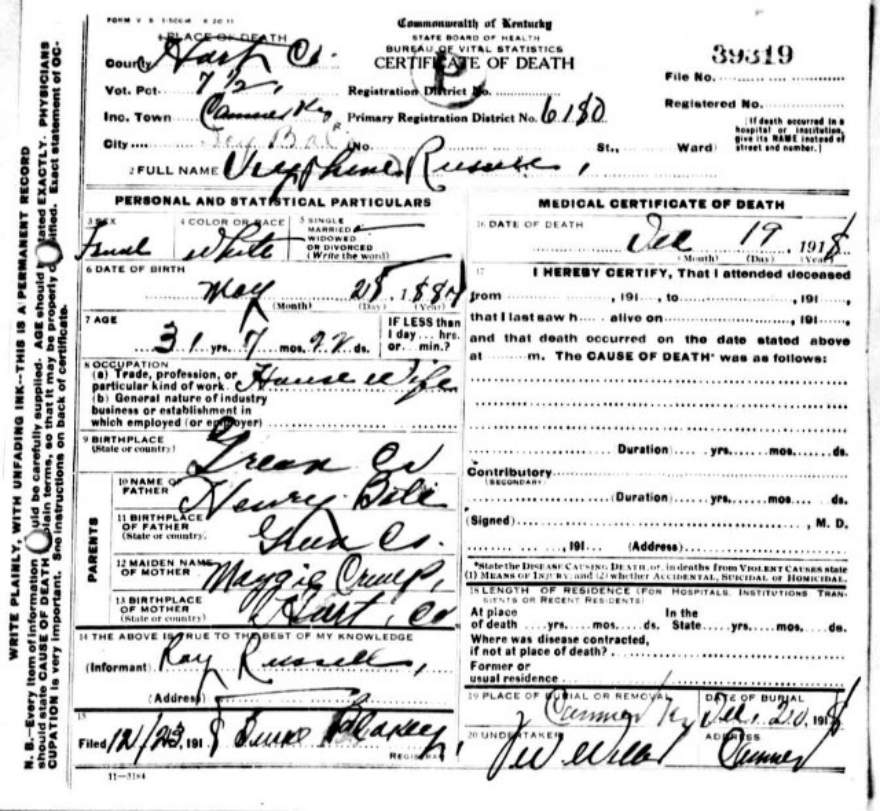 FORM V. S. 1-500-4 8 20 11
Commonwealth of Kentucky
STATE BOARD OF HEALTH
BUREAU OF VITAL STATISTICS
CERTIFICATE OF DEATH
39319
File No.
Registered No.
[If death occurred in a hospital or institution, give its NAME instead of street and number.]
1 PLACE OF DEATH
County Hart Co.
Vot. Pct. 7 1/2 Registration District No.
Inc. Town Canmer Ky Primary Registration District No. 6180
City (No. St., Ward)
2 FULL NAME Russell
PERSONAL AND STATISTICAL PARTICULARS
3 SEX 4 COLOR OR RACE 5 SINGLE
MARRIED
WIDOWED
OR DIVORCED
(Write the word)
Femal White
6 DATE OF BIRTH
May 28, 1887
(Month) (Day) (Year)
7 AGE
31 yrs. 7 mos. 22 ds.
IF LESS than
1 day... hrs.
or... min.?
8 OCCUPATION
(a) Trade, profession, or
particular kind of work. House Wife
(b) General nature of industry
business or establishment in
which employed (or employer)
9 BIRTHPLACE
(State or country) Green Co
PARENTS
10 NAME OF
FATHER Henry Bale
11 BIRTHPLACE
OF FATHER
(State or country) Green Co.
12 MAIDEN NAME
OF MOTHER Maggie Crump,
13 BIRTHPLACE
OF MOTHER
(State or country) Hart, Co
14 THE ABOVE IS TRUE TO THE BEST OF MY KNOWLEDGE
(Informant) Ray Russell,
(Address)
15
Filed 12/23, 1918 Blakey,
REGISTRAR
11-3184
MEDICAL CERTIFICATE OF DEATH
16 DATE OF DEATH
Dec 19, 1918
(Month) (Day) (Year)
17 I HEREBY CERTIFY, That I attended deceased
from , 191 , to , 191 ,
that I last saw h alive on , 191 ,
and that death occurred on the date stated above
at m. The CAUSE OF DEATH* was as follows:
Duration yrs. mos. ds.
Contributory
(SECONDARY)
(Duration) yrs. mos. ds.
(Signed) , M. D.
, 191 (Address)
*State the DISEASE CAUSING DEATH, or, in deaths from VIOLENT CAUSES state
(1) MEANS OF INJURY; and (2) whether ACCIDENTAL, SUICIDAL or HOMICIDAL.
18 LENGTH OF RESIDENCE (FOR HOSPITALS, INSTITUTIONS, TRANSIENTS OR RECENT RESIDENTS)
At place In the
of death yrs. mos. ds. State yrs. mos. ds.
Where was disease contracted,
if not at place of death?
Former or
usual residence
19 PLACE OF BURIAL OR REMOVAL DATE OF BURIAL
Canmer Ky Dec. 20, 1918
20 UNDERTAKER ADDRESS
Canmer
WRITE PLAINLY, WITH UNFADING INK--THIS IS A PERMANENT RECORD
N. B.--Every item of information should be carefully supplied. AGE should be stated EXACTLY. PHYSICIANS
should state CAUSE OF DEATH in plain terms, so that it may be properly classified. Exact statement of OC-
CUPATION is very important. See instructions on back of certificate.